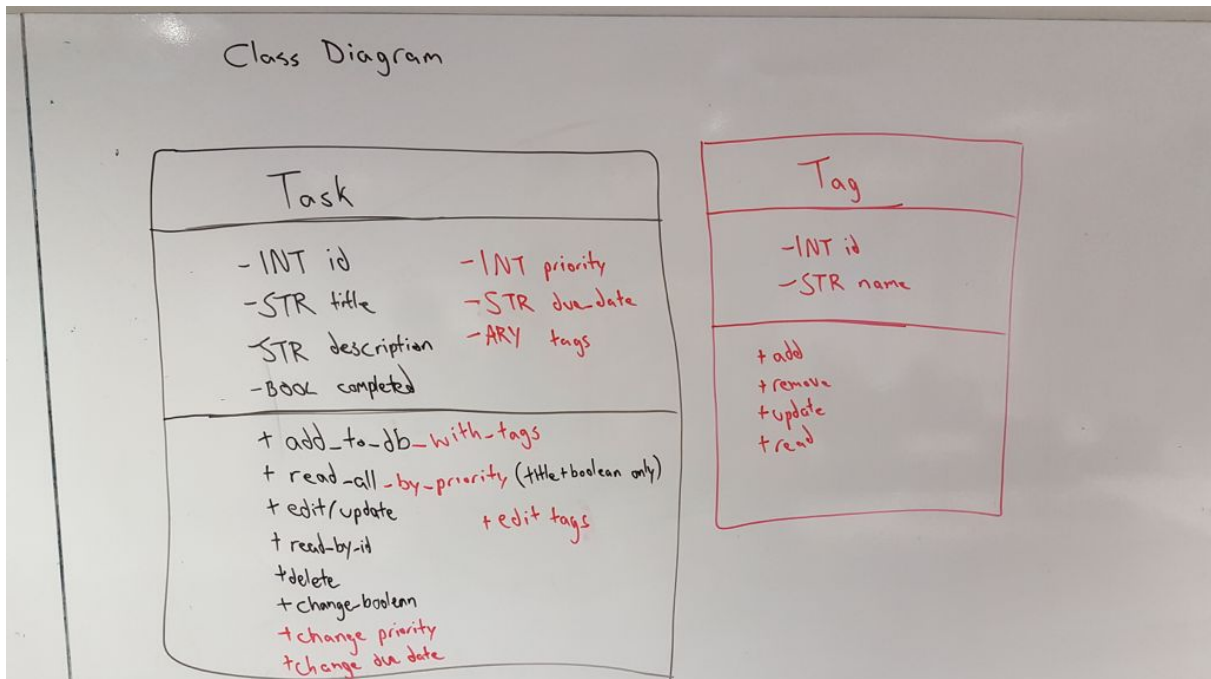 Class Diagram
Task
-INT id
-STR title
-STR description
-BOOL completed
-INT priority
-STR due_date
-ARY tags
+ add_to_db_with_tags
+ read_all_by_priority (title+boolean only)
+ edit/update
+ edit tags
+ read_by_id
+delete
+change_boolean
+change priority
+change due date
Tag
-INT id
-STR name
+ add
+remove
+update
+read